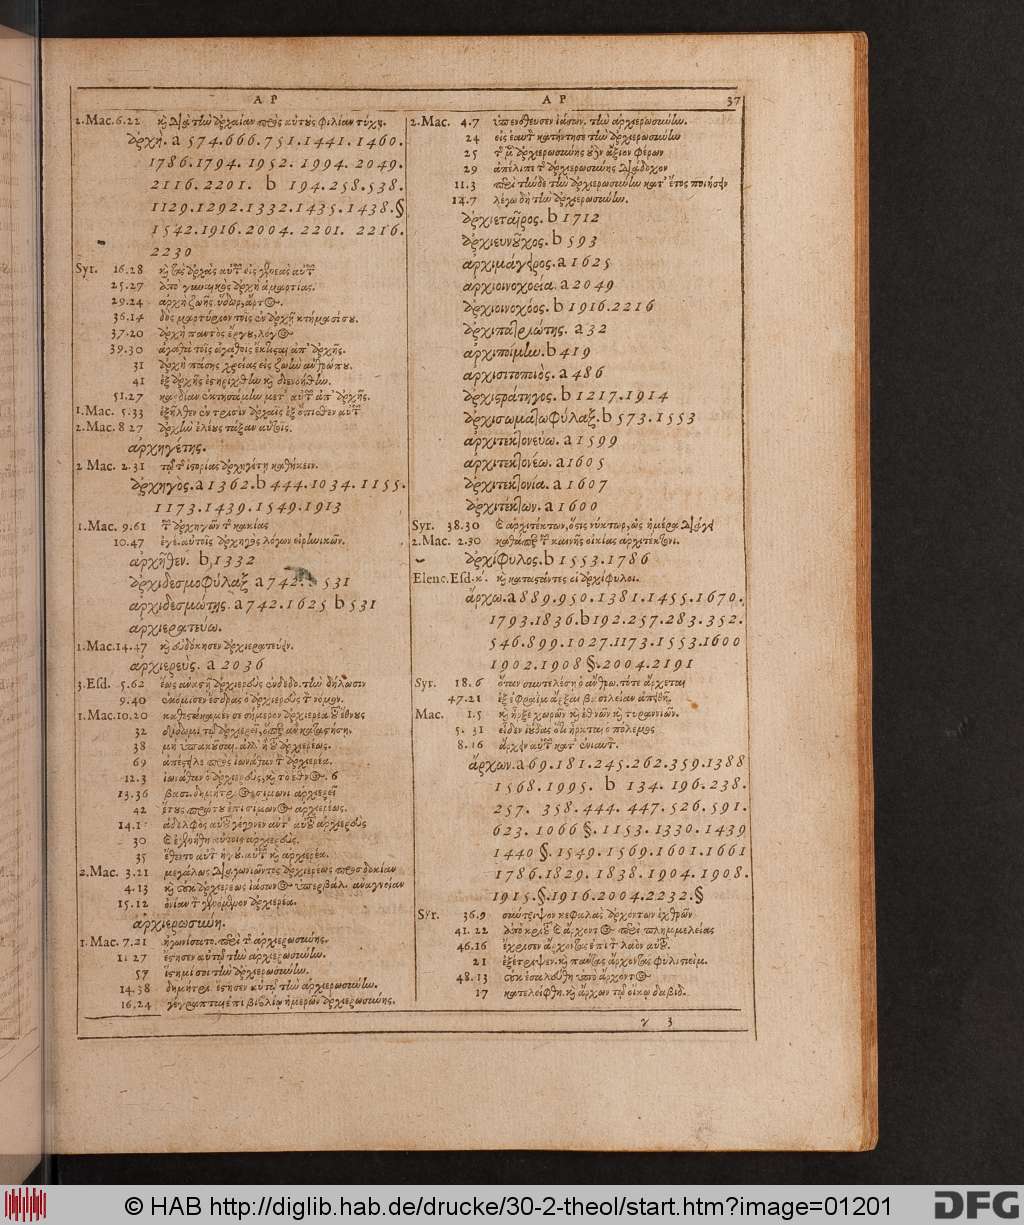 Α Ρ
Α Ρ 37
2.Mac.6.22 φιλίαν τύχῃ.
ἀρχή. a 574.666.751.1441.1460.
1786.1794.1952.1994.2049.
2116.2201. b 194.258.538.
1129.1292.1332.1435.1438.§
1542.1916.2004.2201.2216.
2230
Syr. 16.28
25.27 ἀπὸ γυναικὸς ἀρχὴ ἁμαρτίας.
29.24 ἀρχὴ ζωῆς ὕδωρ, ἄρτος.
36.14 δὸς μαρτύριον τοῖς ἐν ἀρχῇ κτήμασί σου.
37.20 ἀρχὴ παντὸς ἔργου, λόγος
39.30 ἀγαθὰ τοῖς ἀγαθοῖς ἔκτισται ἀπ' ἀρχῆς.
31 ἀρχὴ πάσης χρείας εἰς ζωὴν ἀνθρώπου.
41 ἐξ ἀρχῆς ἐστηρίχθην καὶ διενοήθην.
51.27 καρδίαν ἐκτησάμην μετ' αὐτῶν ἀπ' ἀρχῆς.
1.Mac. 5.33 ἐξῆλθεν ἐν τρισὶν ἀρχαῖς ἐξ ὄπισθεν αὐτῶν
2.Mac. 8 27
ἀρχηγέτης.
2 Mac. 2.31 τῷ τῆς ἱστορίας ἀρχηγέτῃ καθήκειν.
ἀρχηγος. a 1362. b 444.1034.1155.
1173.1439.1549.1913
1.Mac. 9.61 τῶν ἀρχηγῶν τῆς κακίας
10.47 ἐγέ. αὐτοῖς ἀρχηγὸς λόγων εἰρηνικῶν.
ἀρχῆθεν. b 1332
ἀρχιδεσμοφύλαξ a 742. 531
ἀρχιδεσμώτης. a 742.1625 b 531
ἀρχιερατεύω.
1.Mac.14.47 καὶ εὐδόκησεν ἀρχιερατεύειν.
ἀρχιερεὺς. a 2036
3.Esd. 5.62 ἕως ἀναστῇ ἀρχιερεὺς ἐνδεδυ. τὴν δήλωσιν
9.40 ἐκόμισεν ἔσδρας ὁ ἀρχιερεὺς τὸν νόμον.
1.Mac.10.20 καθεστάκαμέν σε σήμερον ἀρχιερέα τοῦ ἔθνους
32
38 μὴ ὑπακοῦσαι ἀλλ' ἢ τοῦ ἀρχιερέως.
69 ἀπέστειλε πρὸς ἰωνάθαν τὸν ἀρχιερέα.
12.3 ἰωνάθαν ὁ ἀρχιερεὺς, καὶ τὸ ἔθνος. 6
13.36 βασι. δημήτριος σίμωνι ἀρχιερεῖ
42 ἔτους πρώτου ἐπὶ σίμωνος ἀρχιερέως.
14.1
30 ἐγενήθη αὐτοῖς ἀρχιερεὺς.
35 ἔθεντο αὐτὸν ἡγού. αὐτῶν καὶ ἀρχιερέα.
2.Mac. 3.21
4.13
15.12 ὀνίαν τὸν γενόμενον ἀρχιερέα.
ἀρχιερωσύνη.
1.Mac. 7.21 ἠγωνίσατο. περὶ τῆς ἀρχιερωσύνης.
11.27 ἔστησεν αὐτῷ τὴν ἀρχιερωσύνην.
57 ἵστημί σοι τὴν ἀρχιερωσύνην.
14.38 δημήτρι. ἔστησεν αὐτῷ τὴν ἀρχιερωσύνην.
16.24 γέγραπται ἐπὶ βιβλίῳ ἡμερῶν ἀρχιερωσύνης.
2.Mac. 4.7 ὑπενόθευσεν ἰάσων. τὴν ἀρχιερωσύνην.
24 εἰς ἑαυτὸν κατήντησε τὴν ἀρχιερωσύνην
25 τῆς μὲν ἀρχιερωσύνης οὐδὲν ἄξιον φέρων
29 ἀπέλιπε τῆς ἀρχιερωσύνης διάδοχον
11.3 ἀρχιερωσύνην κατ' ἔτος ποιήσειν
14.7 λέγω δὴ τὴν ἀρχιερωσύνην.
ἀρχιεταῖρος. b 1712
ἀρχιευνοῦχος. b 593
ἀρχιμάγειρος. a 1625
ἀρχιοινοχοεία. a 2049
ἀρχιοινοχόος. b 1916.2216
ἀρχιπατριώτης. a 32
ἀρχιποίμην. b 419
ἀρχισιτοποιὸς. a 486
ἀρχιστράτηγος. b 1217.1914
ἀρχισωματοφύλαξ. b 573.1553
ἀρχιτεκτονεύω. a 1599
ἀρχιτεκτονέω. a 1605
ἀρχιτεκτονία. a 1607
ἀρχιτέκτων. a 1600
Syr. 38.30 ἀρχιτέκτων, ὅστις νύκτωρ, ὡς ἡμέρα διάγει
2.Mac. 2.30 καθάπερ τῆς καινῆς οἰκίας ἀρχιτέκτονι.
ἀρχίφυλος. b 1553.1786
Elenc. Esd. κ'. καὶ καταστάντες οἱ ἀρχίφυλοι.
ἄρχω. a 889.950.1381.1455.1670.
1793.1836. b 192.257.283.352.
546.899.1027.1173.1553.1600
1902.1908 §.2004.2191
Syr. 18.6 ὅταν συντελέσῃ ὁ ἄνθρω. τότε ἄρχεται
47.21 ἐξ ἐφραῒμ ἄρξαι βασιλείαν ἀπειθῆ.
Mac. 1.5 καὶ ἦρξε χωρῶν καὶ ἐθνῶν καὶ τυραννιῶν.
5. 31 εἶδεν ἰούδας ὅτι ἦρκται ὁ πόλεμος
8.16 ἄρχειν αὐτῶν κατ' ἐνιαυτ.
ἄρχων. a 69.181.245.262.359.1388
1568.1995. b 134.196.238.
257. 358.444.447.526.591.
623.1066 §.1153.1330.1439
1440 §.1549.1569.1601.1661
1786.1829.1838.1904.1908.
1915.§.1916.2004.2232.§
Syr. 36.9 σύντριψον κεφαλὰς ἀρχόντων ἐχθρῶν
41.22 ἀπὸ κριτοῦ ἄρχοντος περὶ πλημμελείας
46.16 ἔχρισεν ἄρχοντας ἐπὶ τὸν λαὸν αὐτοῦ.
21 ἐξέτριψεν. καὶ πάντας ἄρχοντας φυλιστιείμ.
48.13 οὐκ ἐσαλεύθη ὑπὸ ἄρχοντος
17 κατελείφθη. καὶ ἄρχων τῷ οἴκῳ δαβίδ.
γ 3
© HAB http://diglib.hab.de/drucke/30-2-theol/start.htm?image=01201
DFG